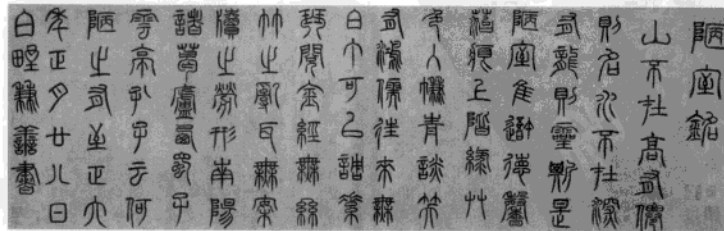 陋室銘
山不在高有僊
則名水不在深
有龍則靈斯是
陋室惟吾德馨
苔痕上階綠艸
色入簾青談笑
有鴻儒往來無
白丁可以調素
琴閱金經無絲
竹之亂耳無案
牘之勞形南陽
諸葛廬西蜀子
雲亭孔子云何
陋之有至正六
年正月廿八日
白野兼善書